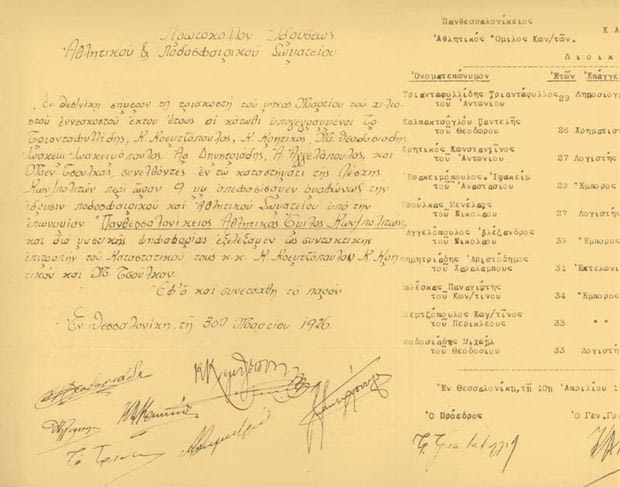 Πρωτόκολλον Ιδρύσεως
Αθλητικού & Ποδοσφαιρικού Σωματείου
Εν Θεσ/νίκη σήμερον τη τριακοστή του μηνός Μαρτίου του χιλιο
στού εννεακοστού έκτου έτους οι κάτωθι υπογεγραμμένοι Τρ.
Τριανταφυλλίδης, Κ. Κρεμτζόπουλος, Κ. Κρητικός, Μιχ. Θεοδοσιάδης,
Ιωακείμ Ιωακειμόπουλος, Αρ. Δημητριάδης, Α. Αγγελόπουλος, και
Μεν. Τσούλκας, συνελθόντες εν τω καταστήματι της Λέσχης
Κων/πολιτών περί ώραν 9 μμ. απεφασίσαμεν ομοφώνως την
ίδρυσιν ποδοσφαιρικού και Αθλητικού Σωματείου υπό την
επωνυμίαν Πανθεσσαλονίκειος Αθλητικός Όμιλος Κων/πολιτών
και δια μυστικής ψηφοφορίας εξελέξαμεν ως συντακτικήν
επιτροπήν του Καταστατικού τους κ.κ. Κ. Κρεμτζόπουλον Κ. Κρη-
τικόν και Μ. Τσούλκαν.
Εφ' ω και συνετάθη το παρόν
Εν Θεσσαλονίκη, τη 30η Μαρτίου 1926.
Πανθεσσαλονίκειος
Ἀθλητικός Ὅμιλος Κων/τῶν. Κ Α
Δ ι ο ι κ
Ὀνοματεπώνυμον Ἐτῶν Ἐπάγγελ
Τριανταφυλλίδης Τριαντάφυλλος 29 Δημοσιογ
τοῦ Ἀντωνίου
Καλπακτσόγλου Παντελῆς
τοῦ Θεοδώρου 26 Χρηματισ
Κρητικός Κωνσταντῖνος
τοῦ Ἀντωνίου 27 Λογιστής
Ἰωακειμόπουλος Ἰωακείμ
τοῦ Ἀναστασίου 29 Ἔμπορος
Τσούλκας Μενέλαος
τοῦ Νικολάου 27 Λογιστής
Ἀγγελόπουλος Ἀλέξανδρος
τοῦ Νικολάου 39 Ἔμπορος
Δημητριάδης Ἀριστόδημος
τοῦ Χαραλάμπους 31 Ἐκτελωνι
Παναγιώτης
τοῦ Κων/τίνου 34 Ἔμπορος
Κρεμτζόπουλος Κων/τῖνος
τοῦ Περικλέους 33 " "
Θεοδοσιάδης Μιχαήλ
τοῦ Θεοδοσίου 33 Λογιστής
Ἐν Θεσσαλονίκῃ,τῇ 10ῃ Ἀπριλίου 1
Ὁ Πρόεδρος Ὁ Γεν.Γρ